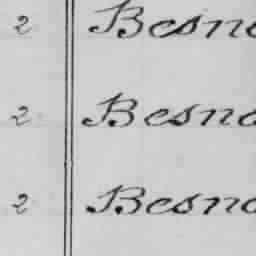 2 Besno
2 Besno
2 Besno